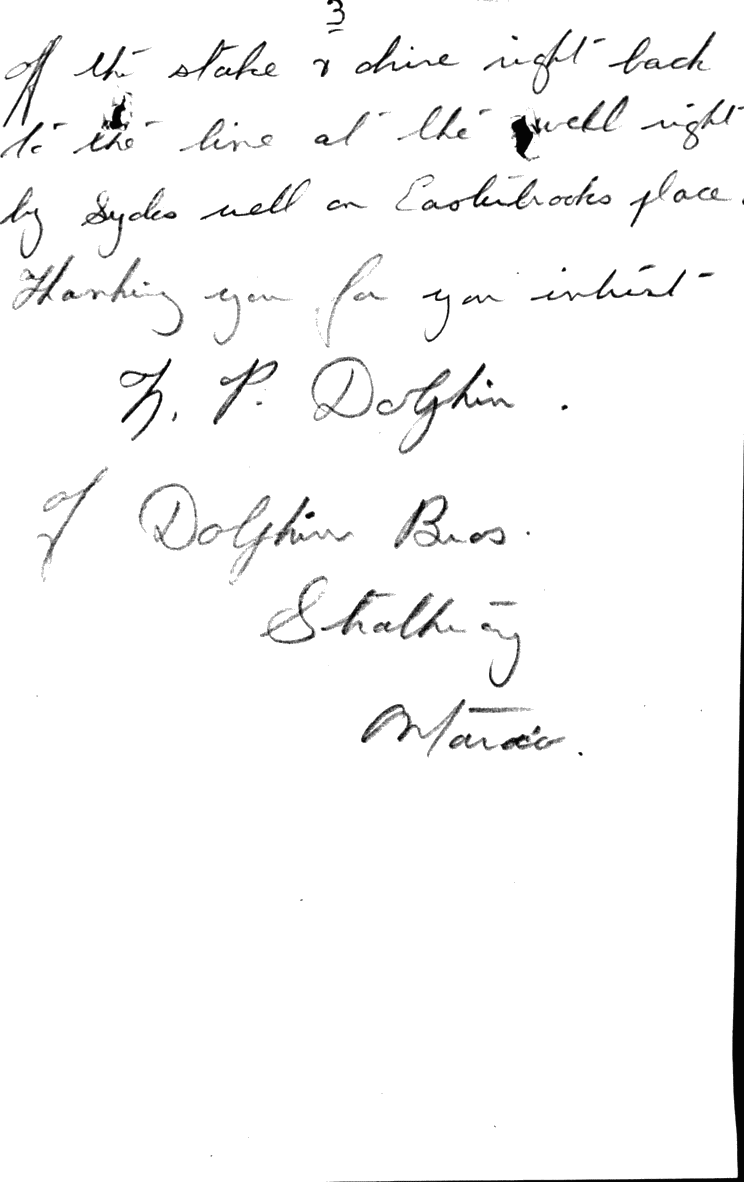 3
of the stake & drive right back
to the line at the well right
by Sydes well on Easterbrooks place.
Thanking you for you interest
P. Dolphin.
of Dolphin Bros.